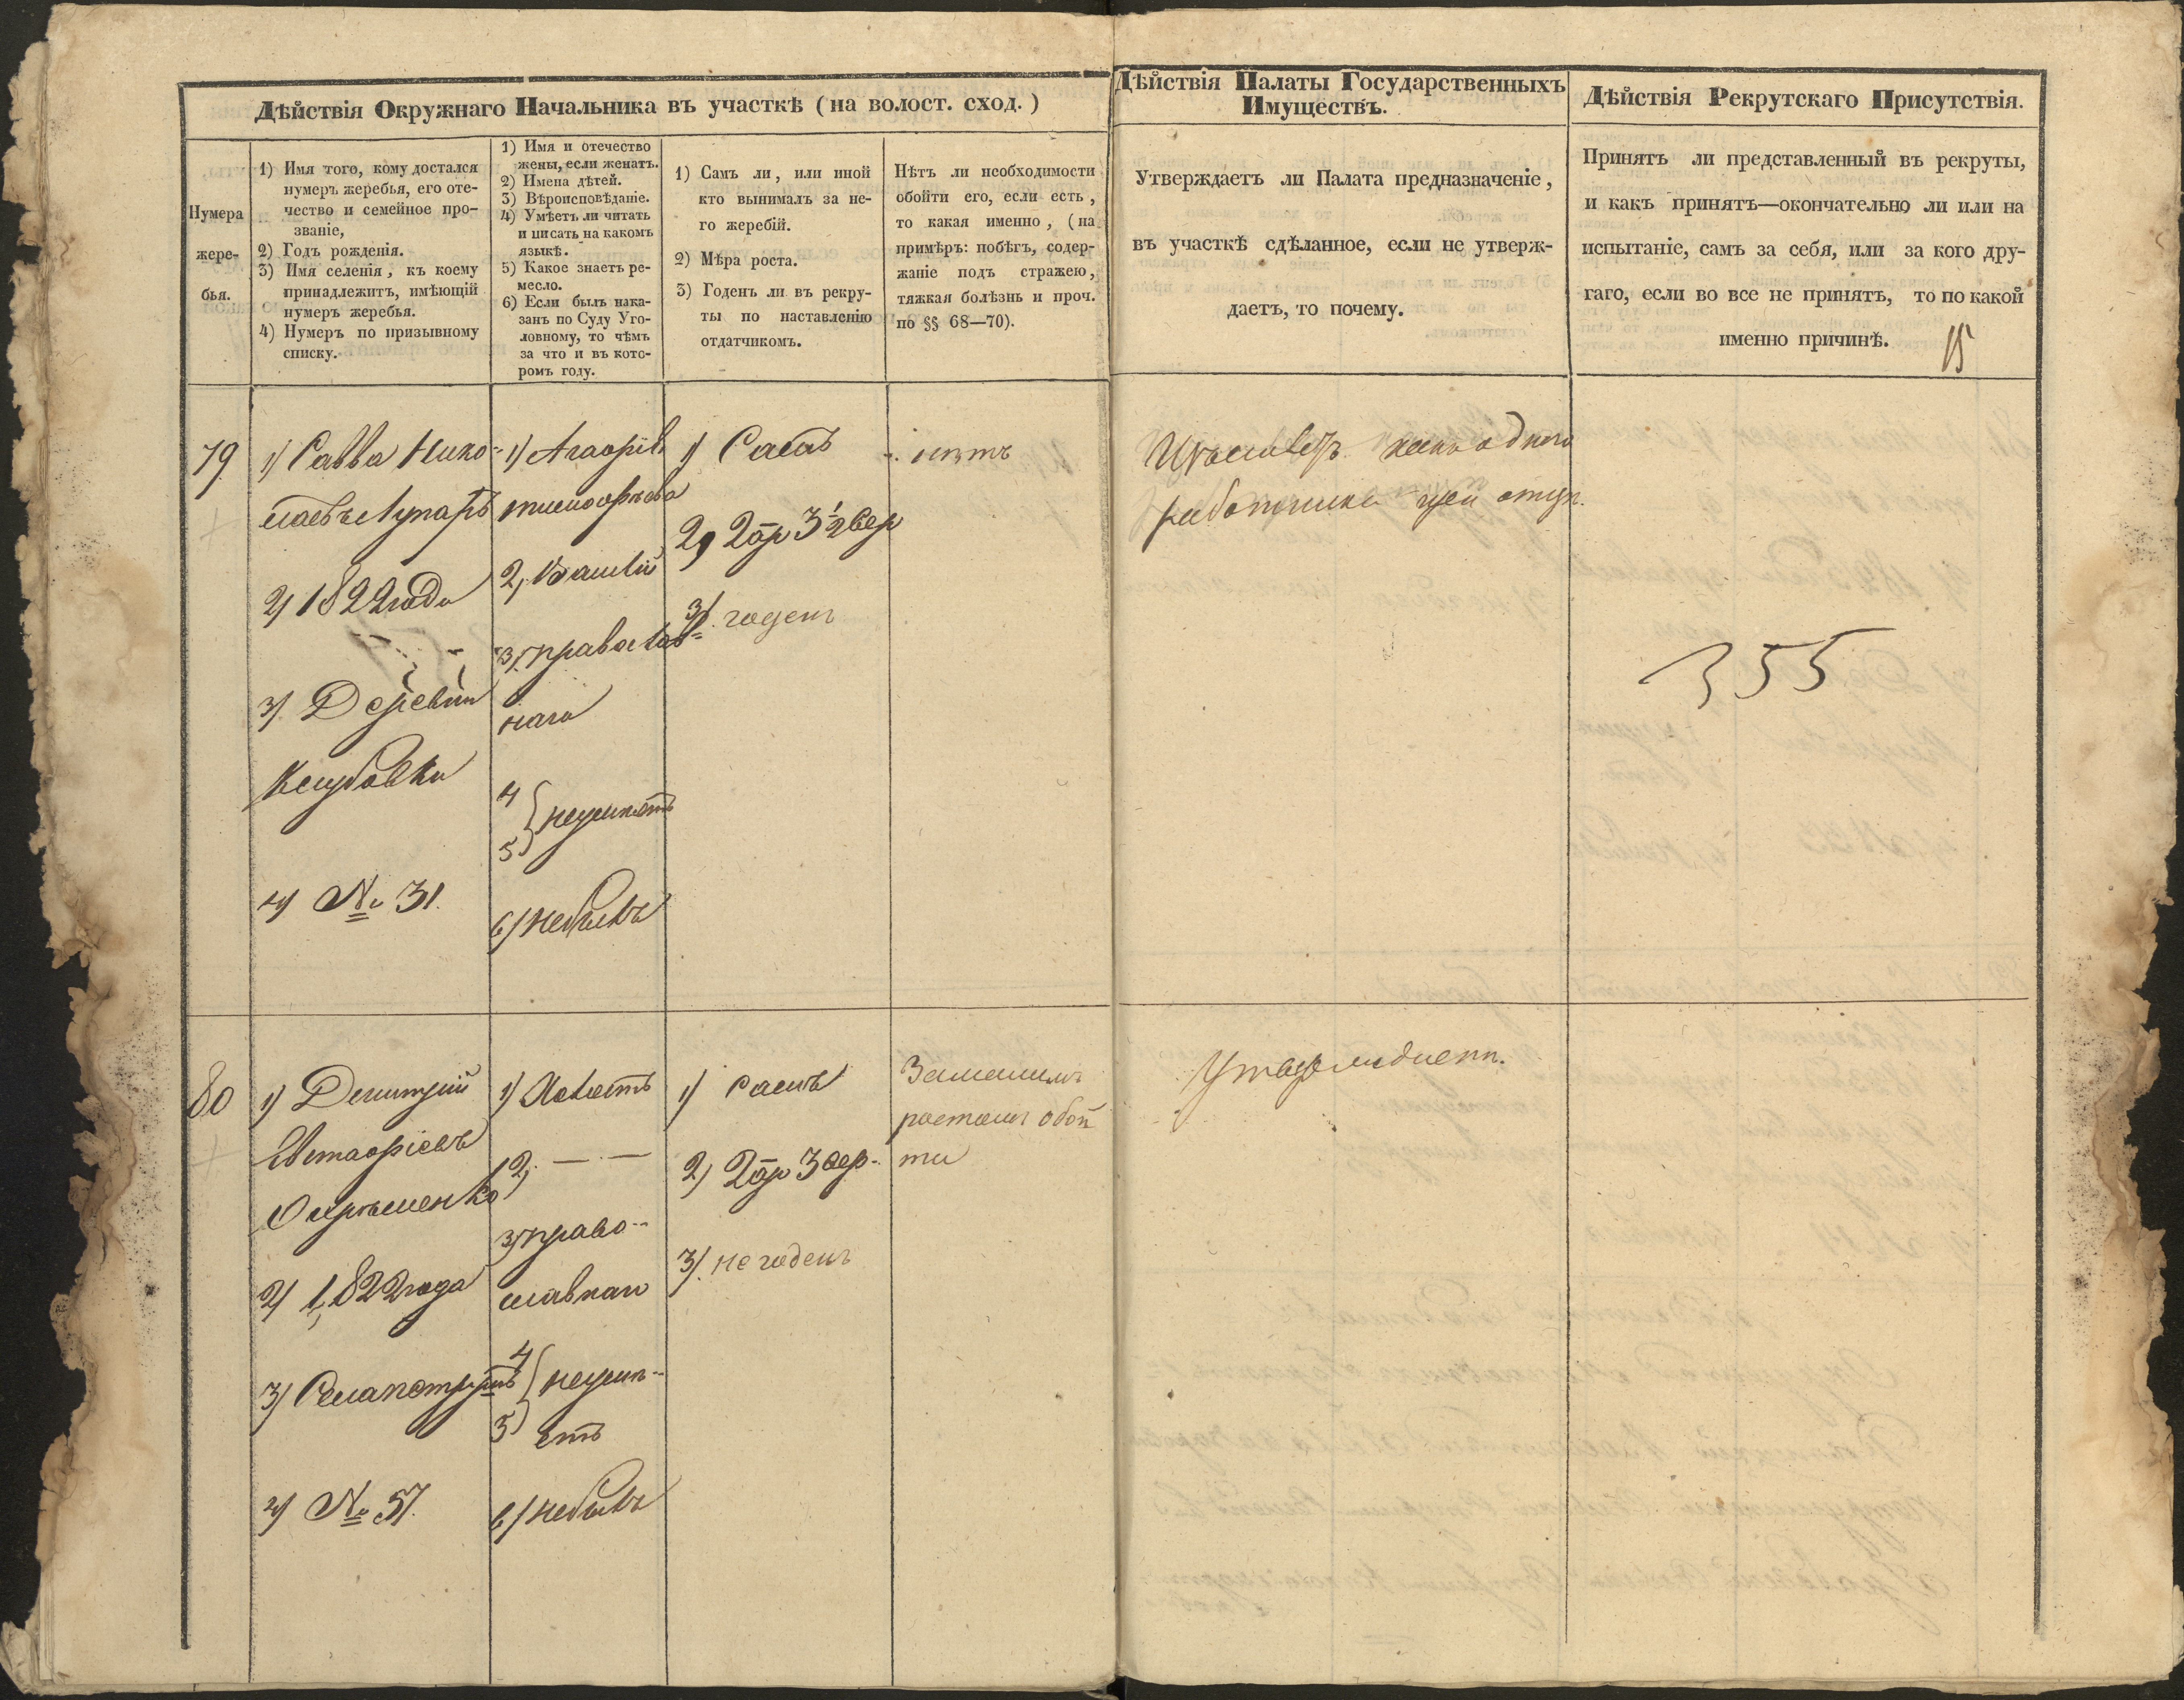 Дѣйствія Окружнаго Начальника въ участкѣ (на волост. сход.)
Нумера
жере-
бья.
1) Имя того, кому достался
нумеръ жеребья, его оте-
чество и семейное про-
званіе,
2) Годъ рожденія.
3) Имя селенія, къ коему
принадлежитъ, имѣющій
нумеръ жеребья.
4) Нумеръ по призывному
списку.
1) Имя и отечество
жены, если женатъ.
2) Имена дѣтей.
3) Вѣроисповѣданіе.
4) Умѣетъ ли читать
и писать на какомъ
языкѣ.
5) Какое знаетъ ре-
месло.
6) Если былъ нака-
занъ по Суду Уго-
ловному, то чѣмъ
за что и въ кото-
ромъ году.
1) Самъ ли, или иной
кто вынималъ за не-
го жеребій.
2) Мѣра роста.
3) Годенъ ли въ рекру-
ты по наставленію
отдатчикомъ.
Нѣтъ ли необходимости
обойти его, если есть,
то какая именно, (на
примѣръ: побѣгъ, содер-
жаніе подъ стражею,
тяжкая болѣзнь и проч.
по §§ 68—70).
Дѣйствія Палаты Государственныхъ
Имуществъ.
Утверждаетъ ли Палата предназначеніе,
въ участкѣ сдѣланное, если не утверж-
даетъ, то почему.
Дѣйствія Рекрутскаго Присутствія.
Принятъ ли представленный въ рекруты,
и какъ принятъ—окончательно ли или на
испытаніе, самъ за себя, или за кого дру-
гаго, если во все не принятъ, то по какой
именно причинѣ.
15
79
1) Савва Нико-
лаевъ
2) 1822 года
3) Деревни
4) № 31.
1)
2,
3) православ=
наго
4
5 } неумѣетъ
6) небылъ
1) Самъ
2) 2 ар 3½ вер
3) годенъ
нѣтъ
работника
355
80
1) Димитрій
Евстафіевъ
2) 1822 года
3) Села
4) № 57.
1) Холостъ
2, — —
3) право-
славнаго
4
5 } неумѣ-
етъ
6) небылъ
1) самъ
2) 2 ар 3 вер.
3) не годенъ
За малымъ
ростомъ обой
ти
Утвержденъ.